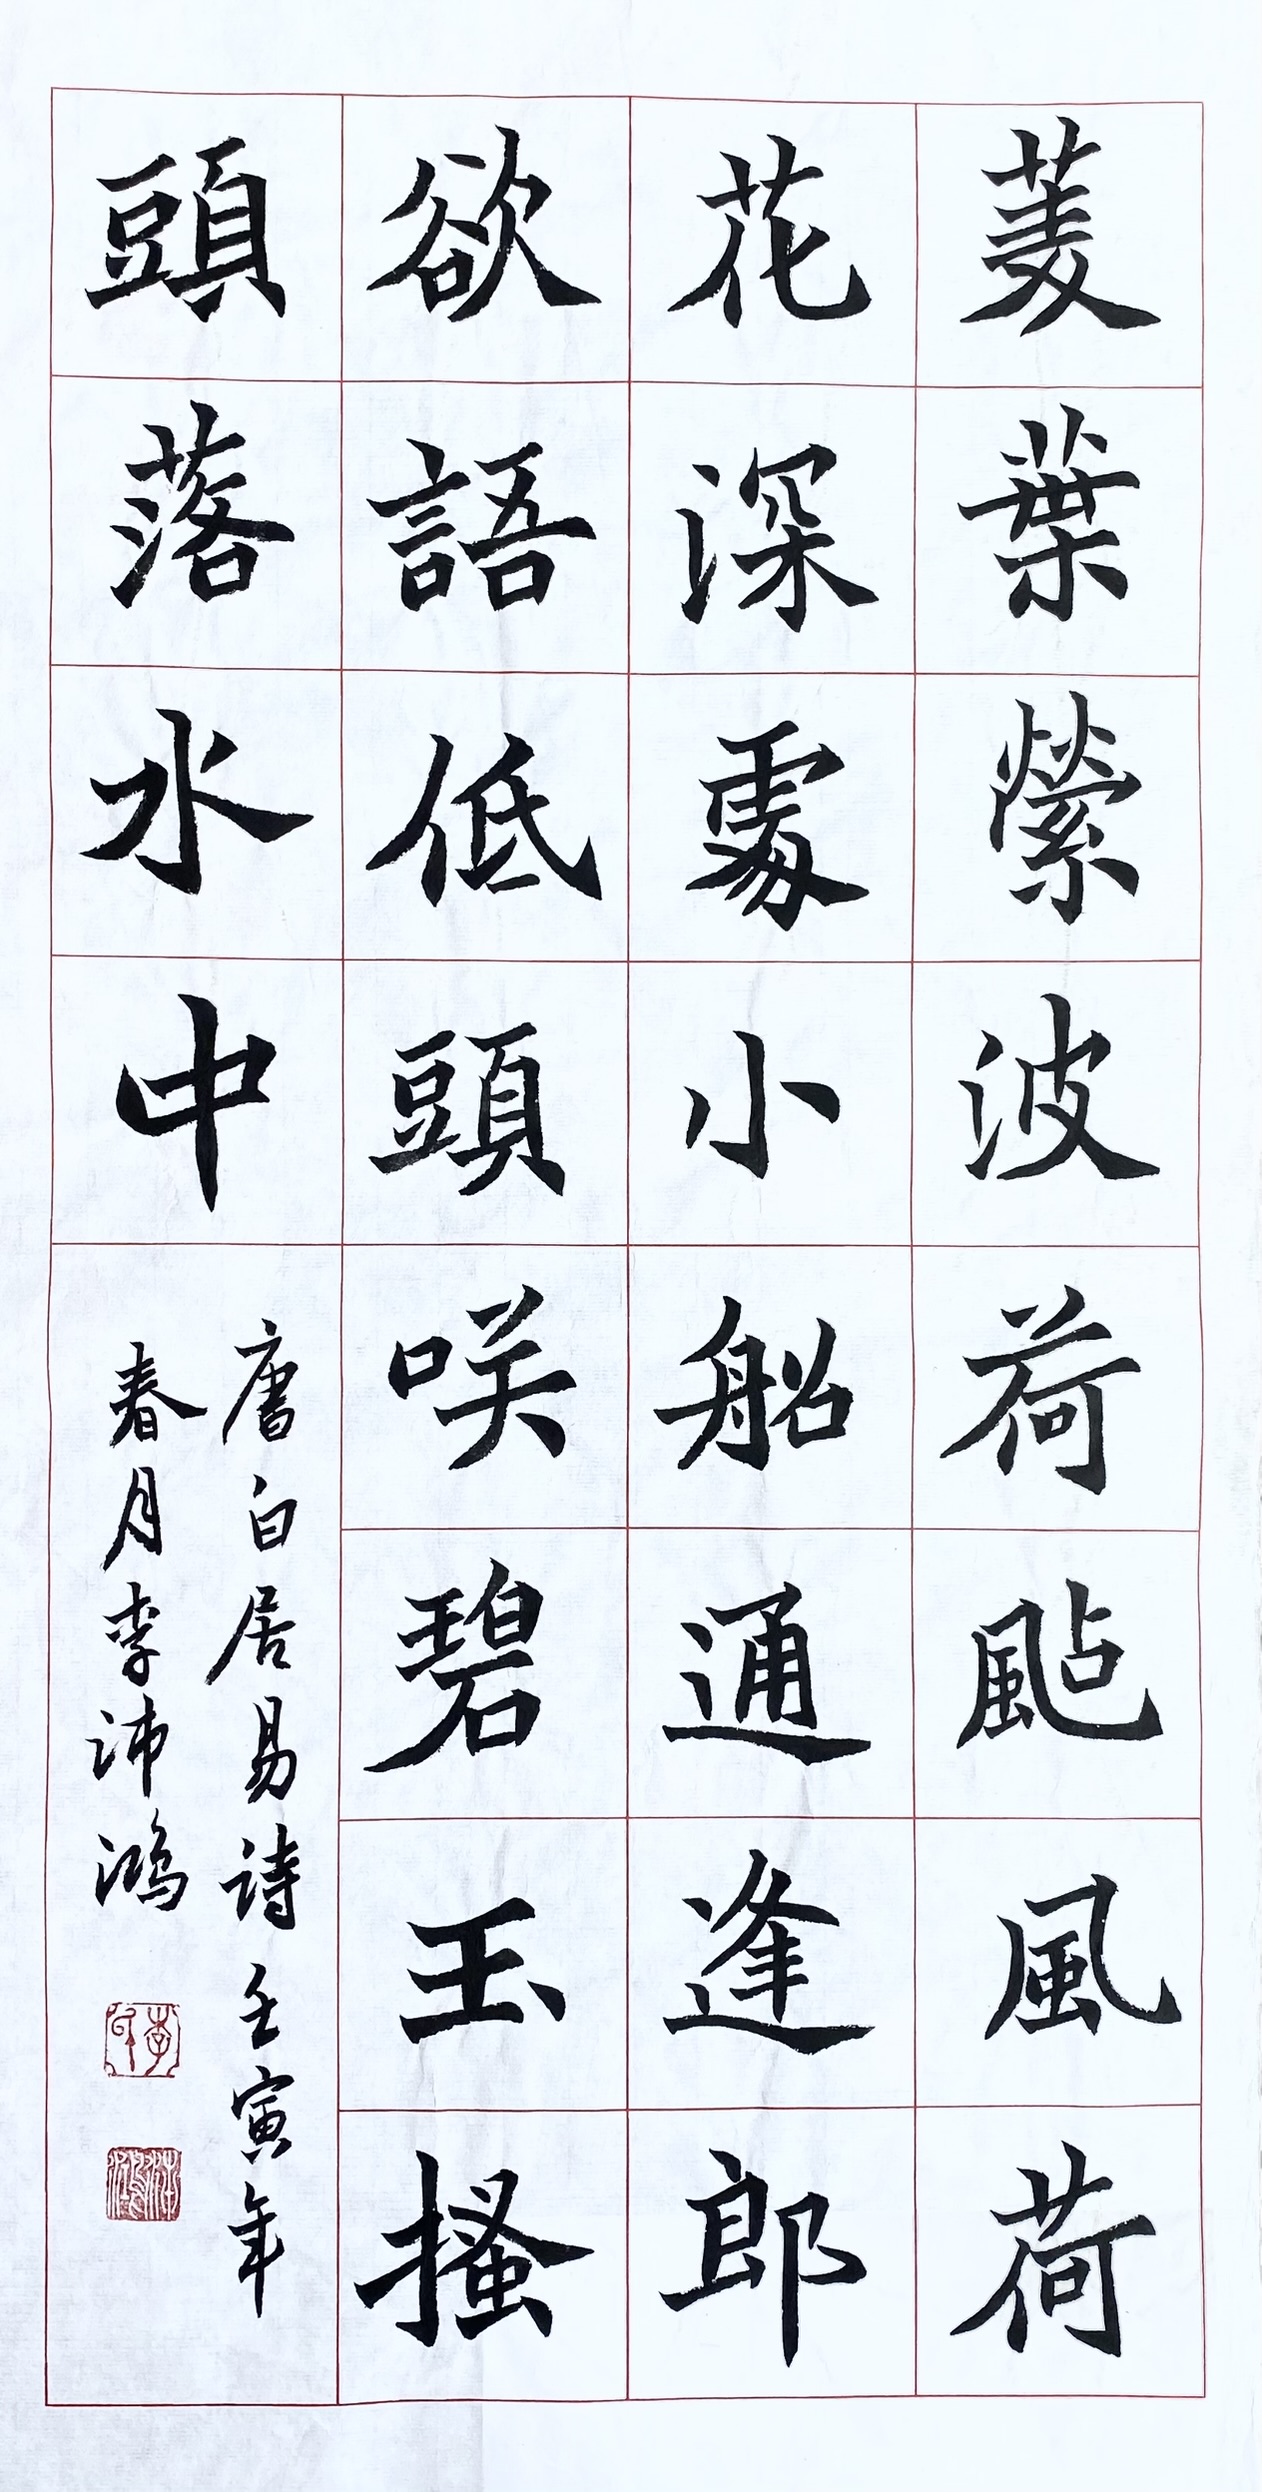 菱葉縈波荷颭風荷
花深處小船通逢郎
欲語低頭咲碧玉搔
頭落水中
唐白居易詩壬寅年
春月李沛鴻